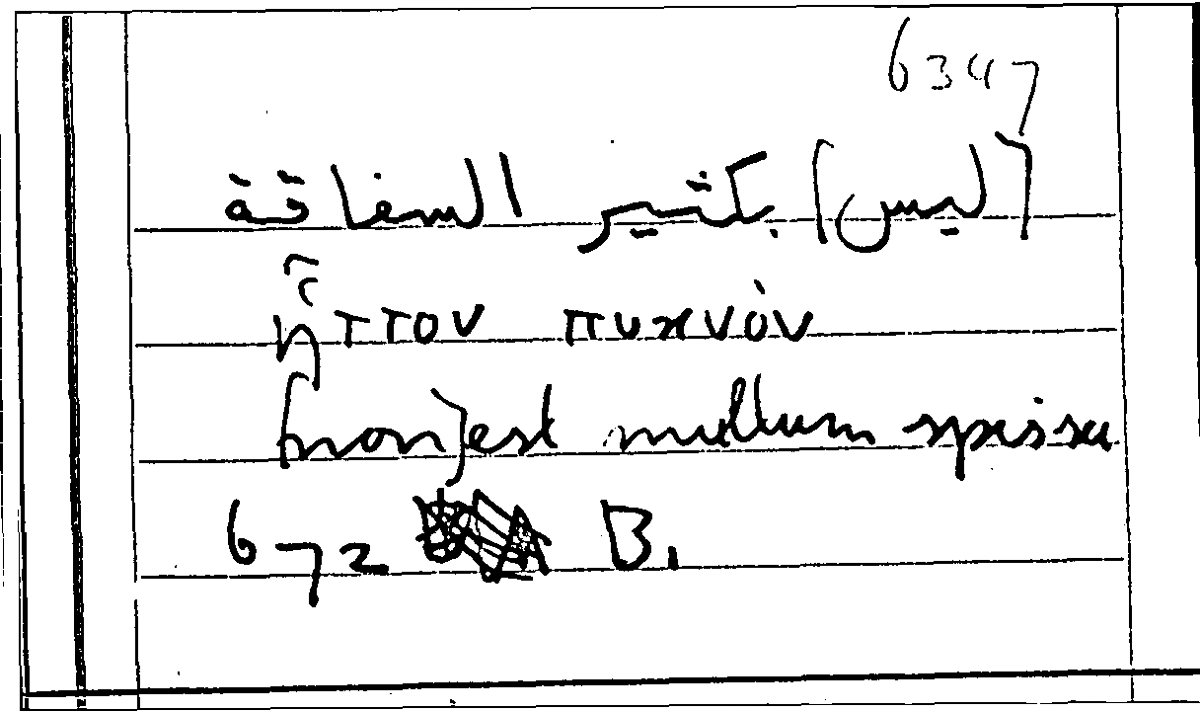 6347
[ليس] بكثير السفاقة
ἧττον πυκνὸν
[non] est multum spissu
672 B.